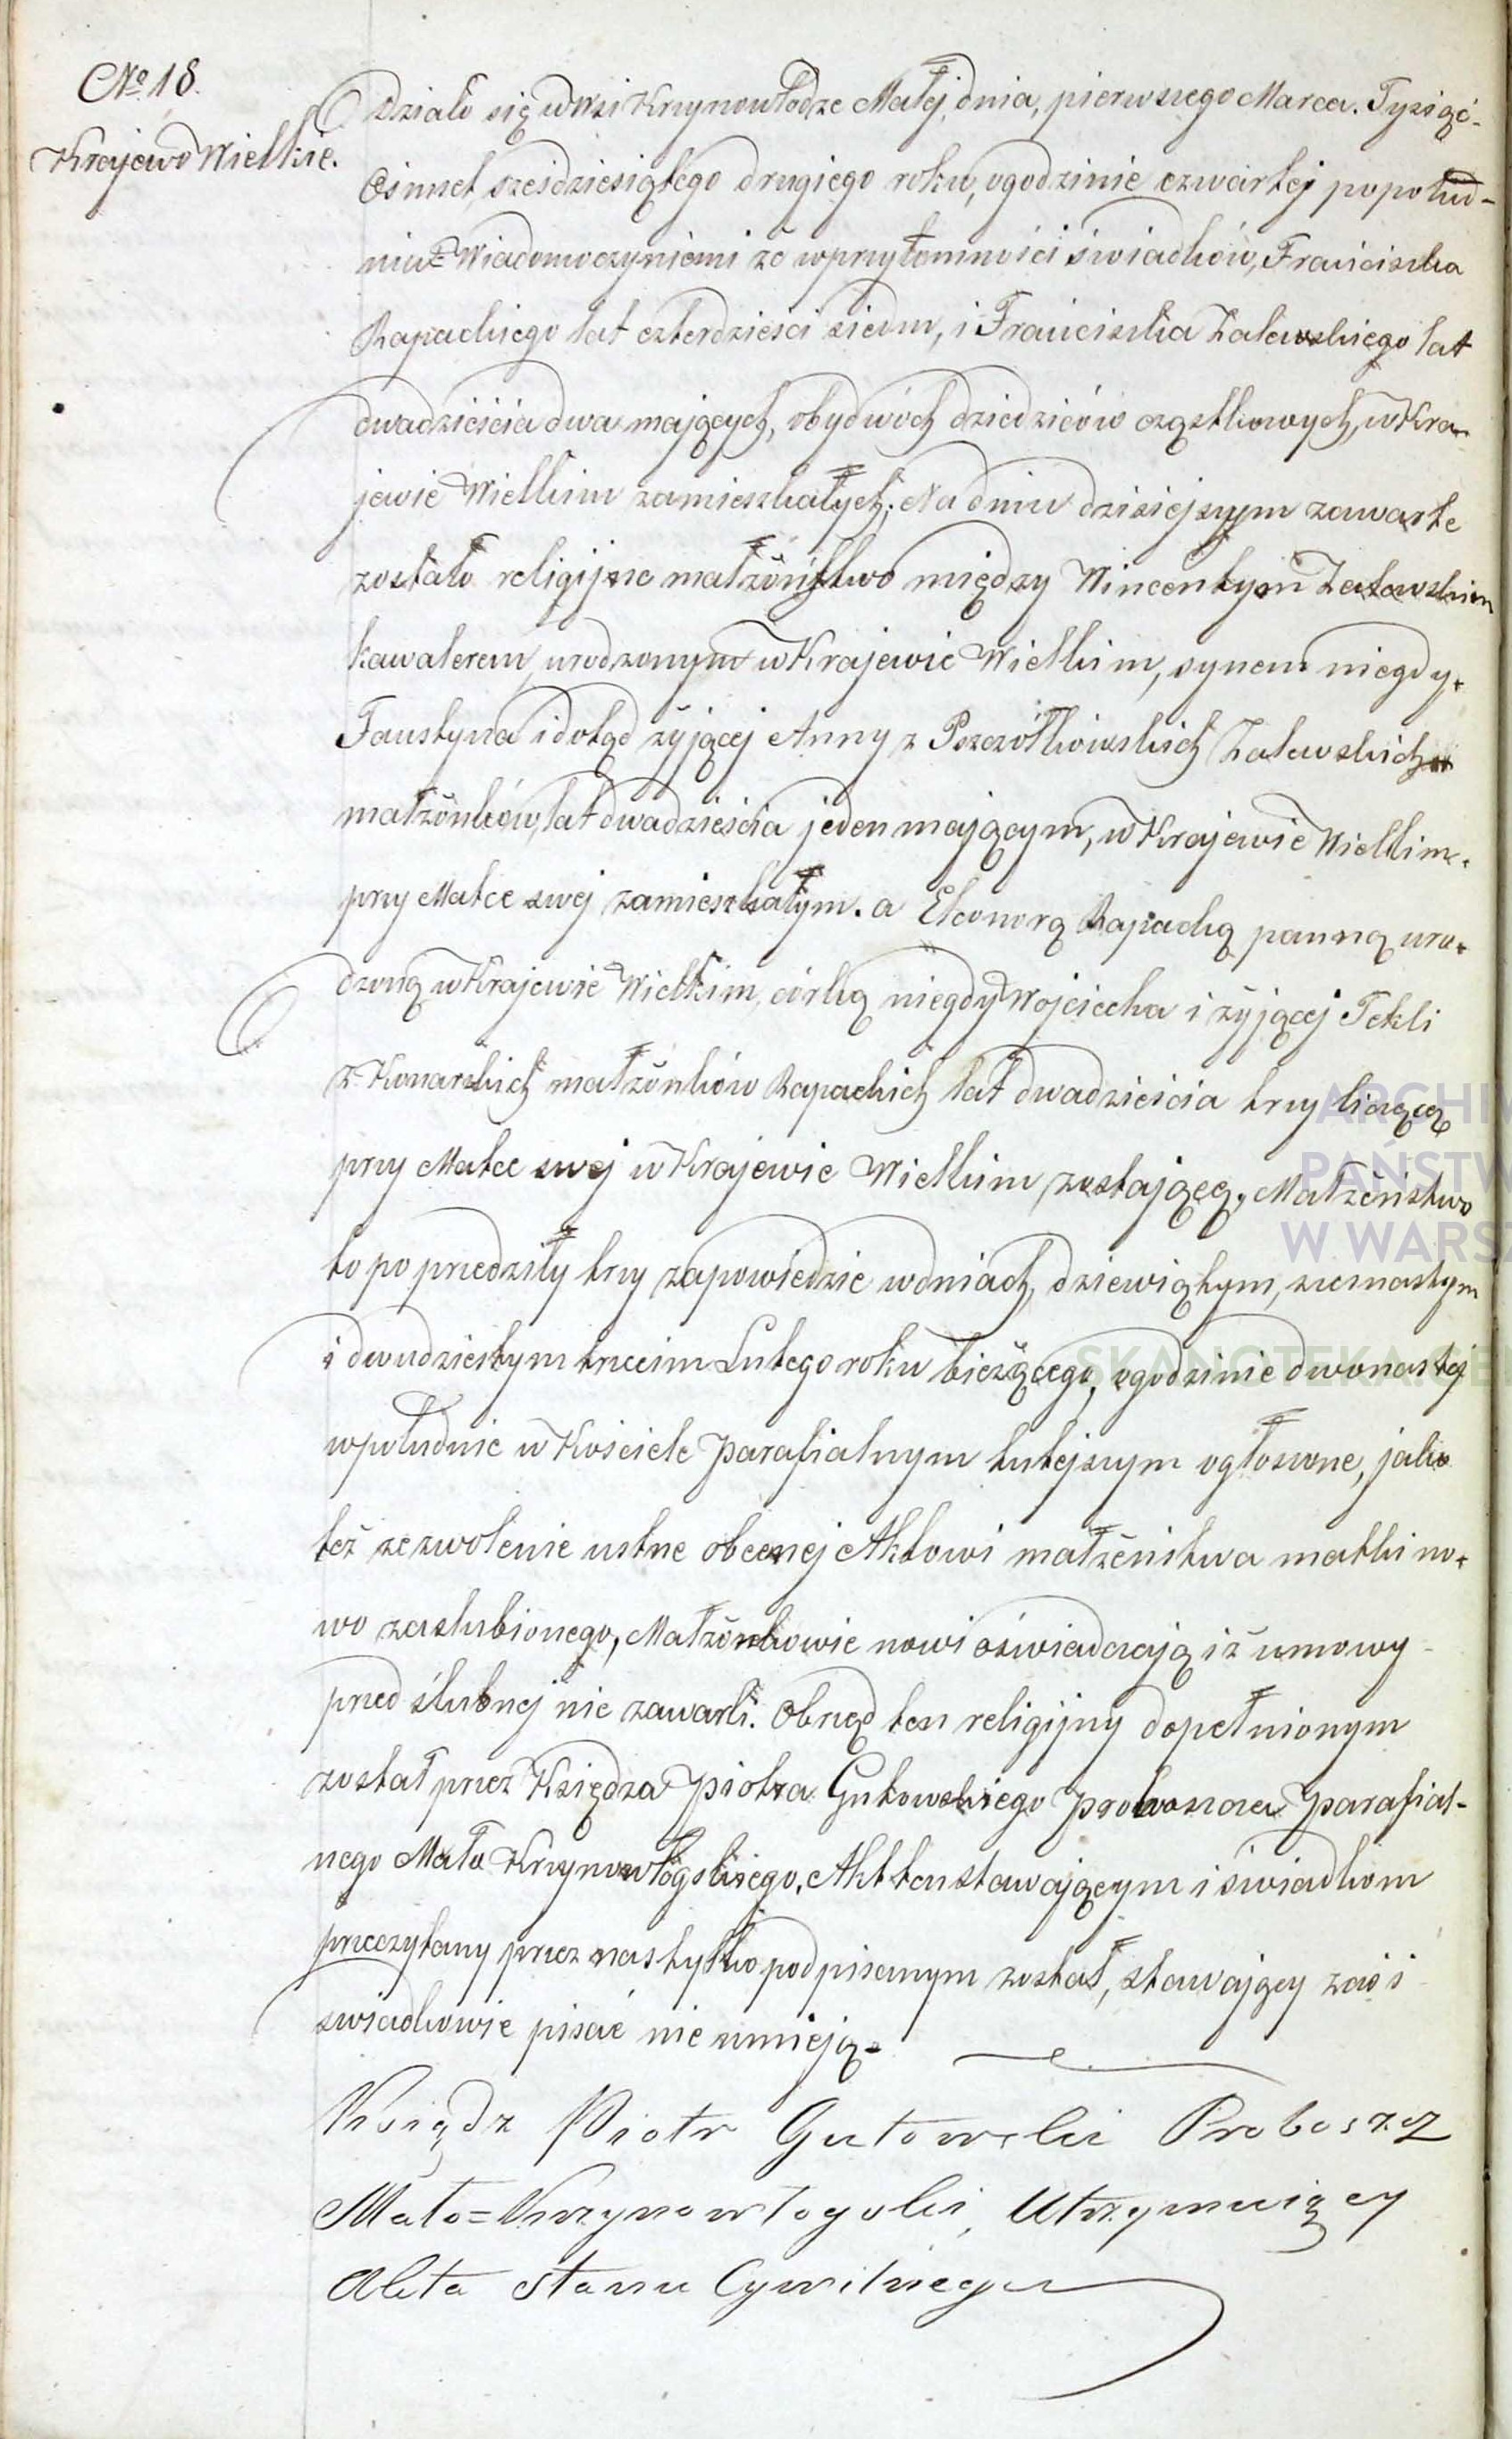 No 18.
Krajewo Wielkie.
Działo się w Wsi Krzynowłodze Małej, dnia, pierwszego Marca. Tysiąc-
Osimset, sześdziesiątego drugiego roku, ogodzinie czwartej popołud-
niu= Wiadomo czyniemi że wprzytomności świadków, Franciszka
Rapackiego lat czterdzieści siedm, i Franciszka Zalewskiego lat
dwadzieścia dwa mających, obydwóch dziedziców cząstkowych, w Kra-
jewie Wielkim zamieszkałych; Na dniu dzisiejszym zawarte
zostało religijne małżeństwo między Wincentym Zalewskim
kawalerem, urodzonym w Krajewie Wielkim, synem niegdy-
Faustyna i dotąd żyjącej Anny z Pszczółkowskich Zalewskich
małżonków, lat dwadzieścia jeden mającym, w Krajewie Wielkim.
przy Matce swej zamieszkałym. a Eleonorą Rapacką panną uro-
dzoną w Krajewie Wielkim, córką niegdy Wojciecha i żyjącej Tekli
z Konarskich małżonków Rapackich lat dwadzieścia trzy liczącą
przy Matce swej w Krajewie Wielkim zostającą, Małżeństwo
to poprzedziły trzy zapowiedzie w dniach, dziewiątym, szesnastym
i dwudziestym trzecim Lutego roku bieżącego, ogodzinie dwonastej
wpołudnie w Kościele Parafialnym tutejszym ogłoszone, jako
też zezwolenie ustne obecnej Aktowi małżeństwa matki no-
wo zaslubionego, Małżonkowie nowi oświadczają iż umowy-
przed ślubnej nie zawarli. Obrzęd ten religijny dopełnionym
został przez Księdza Piotra Gutowskiego Proboszcza Parafial-
nego Mało Krzynowłogskiego, Akt ten stawającym i świadkom
przeczytany przez nas tylko podpisanym został, stawający zaś i
swiadkowie pisać nie umieją.
Ksiądz Piotr Gutowski Proboszcz
Mało=Krzynowłogski, Utrzymuiący
Akta Stanu Cywilnego
ARCHI
PAŃSTW
W WARS
SKANOTEKA.GE